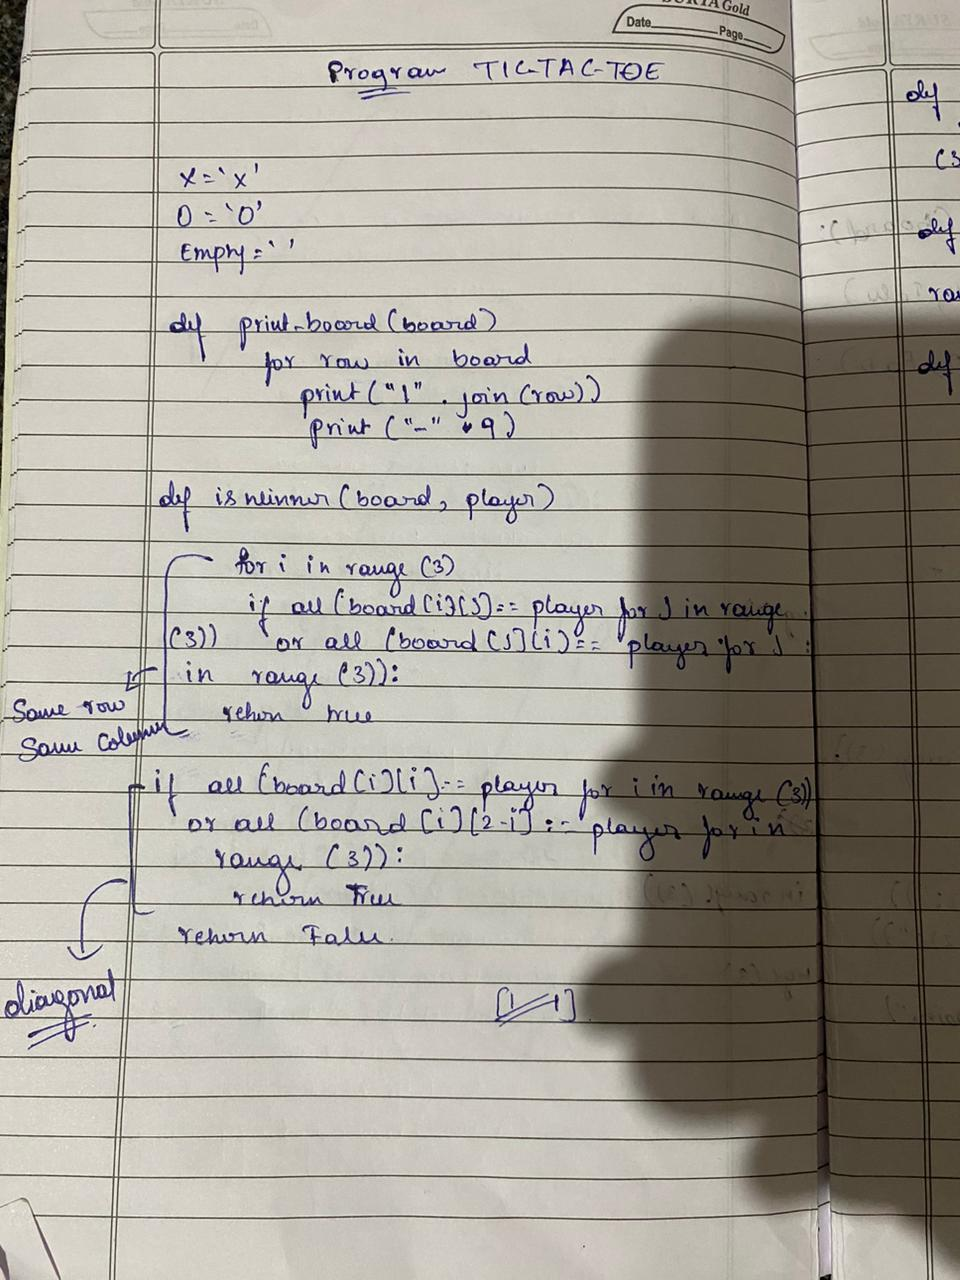 SURYA Gold
Date Page
Program TIC-TAC-TOE
X = 'X'
O = 'O'
Empty = ' '
def print-board (board)
for row in board
print ("|" . join (row))
print ("-" * 9)
def is
(board, player)
for i in range (3)
if all (board [i][J] == player for J in range
(3)) or all (board [J][i] == player for J
in range (3)):
return true
Same row
Same Column
if all (board [i][i] == player for i in range (3))
or all (board [i][2-i] == player for in
range (3)):
return True
return False.
diagonal
def
(3
def
ran
def